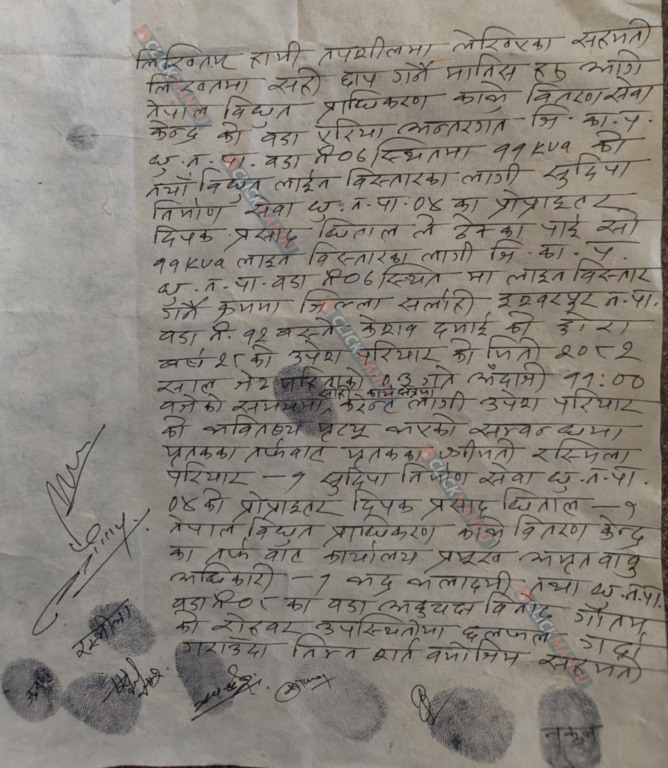 लिखितम हामी तपशीलमा लेखिएका सहमती
लिखतमा सही छाप गर्ने मानिस हरु आगे
नेपाल विधुत प्राधिकरण काभ्रे वितरण सेवा
केन्द्र को वडा एरिया अन्तरगत जि. का. प.
धु. न. पा. वडा नं ०६ स्थितमा ११ KVA को
नयाँ विधुत लाईन विस्तारका लागी सुदिपा
निर्माण सेवा धु. न. पा. ०४ का प्रोप्राइटर
दिपक प्रसाद धिताल ले ठेक्का पाई सो
११ KVA लाइन विस्तारका लागी जि. का. प.
धु. न. पा. वडा नं ०६ स्थित मा लाइन विस्तार
गर्ने क्रममा जिल्ला सर्लाही ईश्वरपुर न. पा.
वडा नं. १२ बस्ने केशव दमाई को छोरा
बर्ष २८ को उपेश परियार को मिती २०८२
साल जेष्ठ महिनाको ०३ गते अंदाजी ११:००
बजेको समयमा कार्य क्षेत्रमा करेन्ट लागी उपेश परियार
को भवितव्य मृत्यु भएको सम्बन्धमा
मृतकका तर्फबाट मृतकका श्रीमती रस्मिला
परियार – १ सुदिपा निर्माण सेवा धु. न. पा.
०४ को प्रोप्राइटर दिपक प्रसाद धिताल – १
नेपाल विधुत प्राधिकरण काभ्रे वितरण केन्द्र
का तर्फ बाट कार्यालय प्रमुख अमृत बाबु
अधिकारी – १ भद्र भलादमी तथा धु. न. पा.
वडा नं ०८ का वडा अध्यक्ष विनोद गौतम
को रोहवर उपस्थितीमा छलफल गर्दा
गराउँदा निम्न शर्त बमोजिम सहमती
रस्मीला
CLICKMANDU